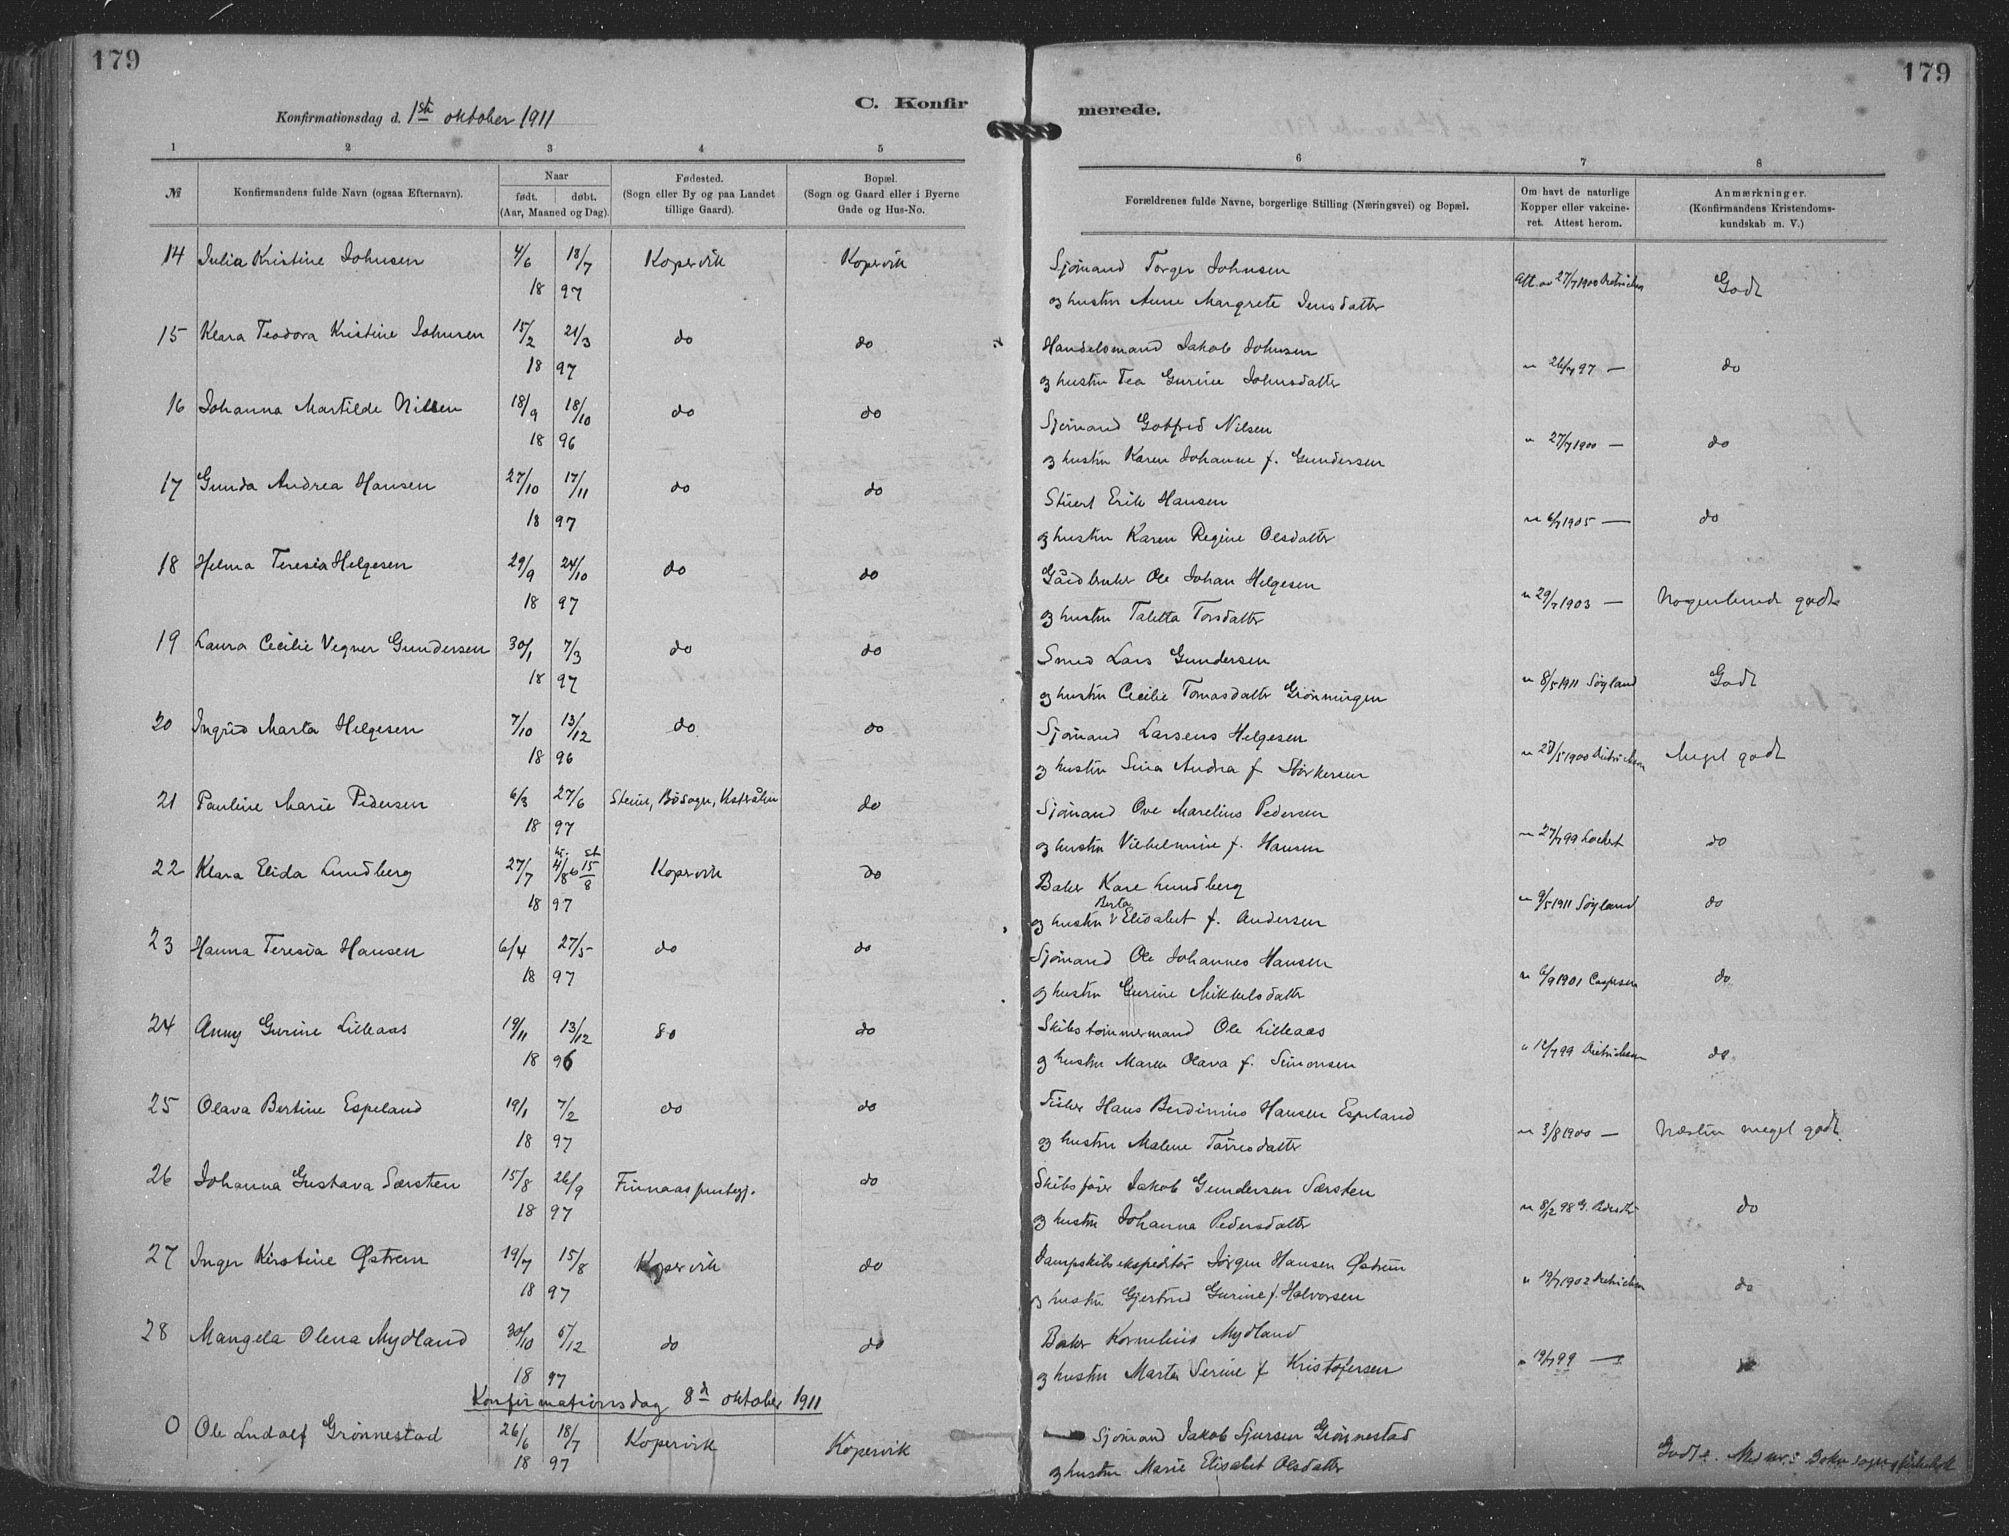 179
179
Konfirmationsdag d. 1ste oktober 1911
C. Konfir
merede.
1 2 3 4 5 6 7 8
№ Konfirmandens fulde Navn (ogsaa Efternavn). Naar født. døbt. (Aar, Maaned og Dag). Fødested. (Sogn eller By og paa Landet tillige Gaard). Bopæl. (Sogn og Gaard eller i Byerne Gade og Hus-No. Forældrenes fulde Navne, borgerlige Stilling (Næringsvei) og Bopæl. Om havt de naturlige Kopper eller vakcineret. Attest herom. Anmærkninger. (Konfirmandens Kristendomskundskab m. V.)
14 Julia Kristine Johnsen 4/6 18/7 Kopervik Kopervik Sjømand Torger Johnsen Att. av 27/7 1900 Dietrichsen Godt
18 97 og hustru Anne Margrete Jensdatter
15 Klara Teodora Kristine Johnsen 15/2 21/3 do do Handelsmand Jakob Johnsen
18 97 og hustru Tea Gurine Johnsdatter " 26/7 97 — do
16 Johanna Martilde Nilsen 18/9 18/10 do do Sjømand Gotfred Nilsen
18 96 og hustru Karen Johanne f. Gundersen " 27/7 1900 — do
17 Gunda Andrea Hansen 27/10 17/11 do do Stuert Erik Hansen
18 97 og hustru Karen Regine Olsdatter " 6/7 1905 — do
18 Helma Teresia Helgesen 29/9 24/10 do do Gårdbruker Ole Johan Helgesen
18 97 og hustru Taletta Torsdatter " 29/7 1903 — Nogenlunde godt
19 Laura Cecilie Vegner Gundersen 30/1 7/3 do do Smed Lars Gundersen
18 97 og hustru Cecilie Tomasdatter Grønningen " 8/5 1911 Søyland Godt
20 Ingrid Marta Helgesen 7/10 13/12 do do Sjømand Larsens Helgesen
18 96 og hustru Sina Andrea f Størkersen " 28/5 1900 Dietrichsen Meget godt
21 Pauline Marie Pedersen 6/3 27/6 Steine, Bø sogn, Vesterålen do Sjømand Ove Marelius Pedersen
18 97 og hustru Vilhelmine f. Hansen " 27/7 99 Lockert do
22 Klara Elida Lundberg 27/7 hj. 4/8 st 15/8 Kopervik do Baker Kare Lundberg
18 97 og hustru Berta Elisabet f. Andersen " 9/5 1911 Søyland do
23 Hanna Teresia Hansen 6/4 27/5 do do Sjømand Ole Johannes Hansen
18 97 og hustru Gurine Mikkelsdatter " 6/9 1901 Caspersen do
24 Anny Gurine Lilleaas 19/11 13/12 do do Skibstømmermand Ole Lilleaas
18 96 og hustru Maren Olava f. Simonsen " 12/7 99 Dietrichsen do
25 Olava Bertine Espeland 19/1 7/2 do do Fisker Hans Berdinius Hansen Espeland
18 97 og hustru Malene Tørresdatter " 3/8 1900 — Næsten meget godt
26 Johanna Gustava Særsten 15/8 26/9 Finnaas prestegj. do Skibsfører Jakob Gundersen Særsten
18 97 og hustru Johanna Pedersdatter " 8/12 98 do
27 Inger Kirstine Østrem 19/7 15/8 Kopervik do Dampskibsekspeditør Jørgen Hansen Østrem
18 97 og hustru Gjertrud Gurine f. Halvorsen " 19/7 1902 Dietrichsen do
28 Mangela Olena Mydland 30/10 5/12 do do Baker Kornelius Mydland
18 97 og hustru Marta Serine f Kristofersen " 19/7 99 — do
Konfirmationsdag 8de oktober 1911
0 Ole Ludolf Grønnestad 26/6 18/7 Kopervik Kopervik Sjømand Jakob Sjursen Grønnestad
18 97 og hustru Marie Elisabet Olsdatter Godt. Med nr. i Bokn sogns kirkebok